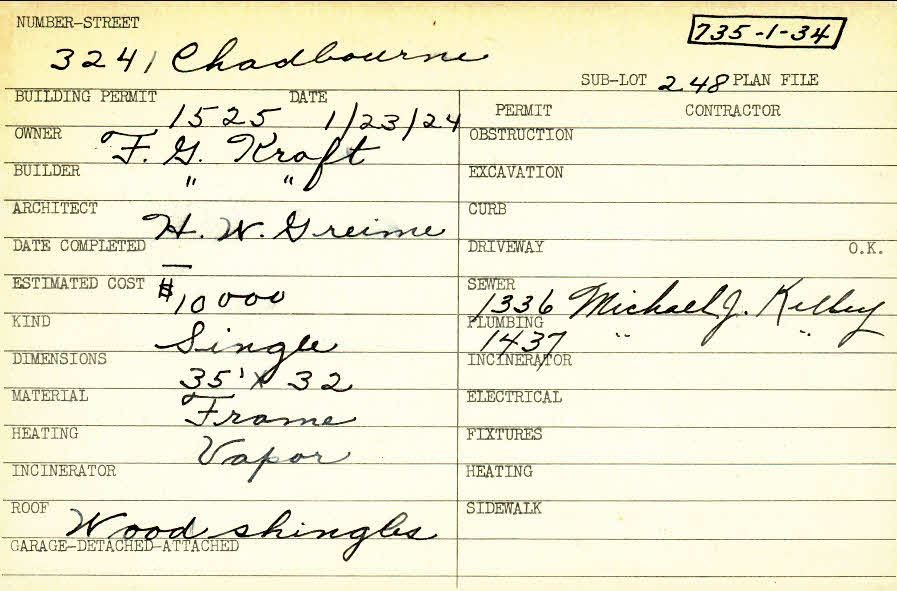 NUMBER-STREET
735-1-34
3241 Chadbourne
SUB-LOT 248 PLAN FILE
BUILDING PERMIT DATE
1525 1/23/24
PERMIT CONTRACTOR
OWNER F. G. Kraft
OBSTRUCTION
BUILDER " "
EXCAVATION
ARCHITECT H. W. Greime
CURB
DATE COMPLETED —
DRIVEWAY O.K.
ESTIMATED COST $10000
SEWER 1336 Michael J. Kelley
KIND Single
PLUMBING 1437 " "
DIMENSIONS 35' x 32
INCINERATOR
MATERIAL Frame
ELECTRICAL
HEATING Vapor
FIXTURES
INCINERATOR
HEATING
ROOF Wood shingles
SIDEWALK
GARAGE-DETACHED-ATTACHED